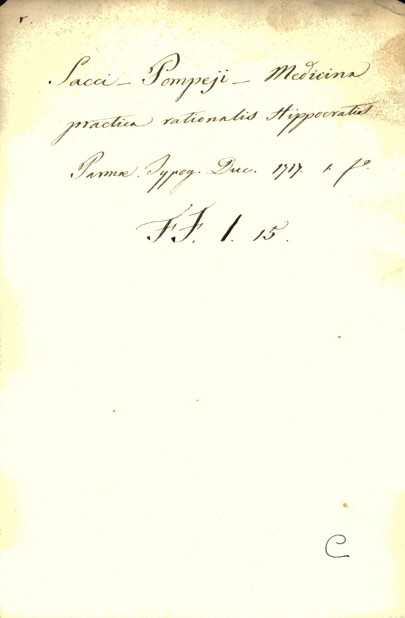 Sacci - Pompeji - Medicina
practica rationalis Hippocratis
Parmæ. Typog. Duc. 1717. 1. fo.
FF. 1. 15.
C